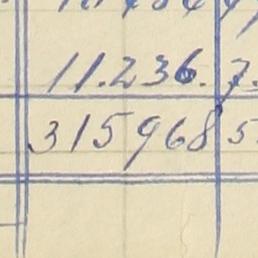 11.236. 7.
315968 5